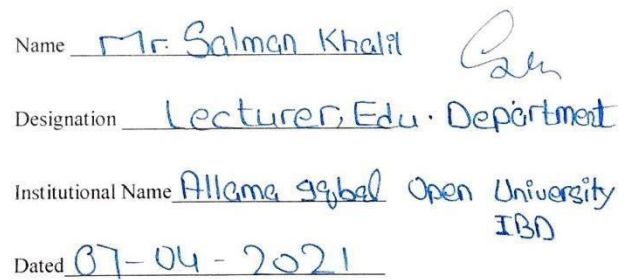 Name Mr. Salman Khalil
Designation Lecturer, Edu. Department
Institutional Name Allama Iqbal Open University
IBD
Dated 07-04-2021